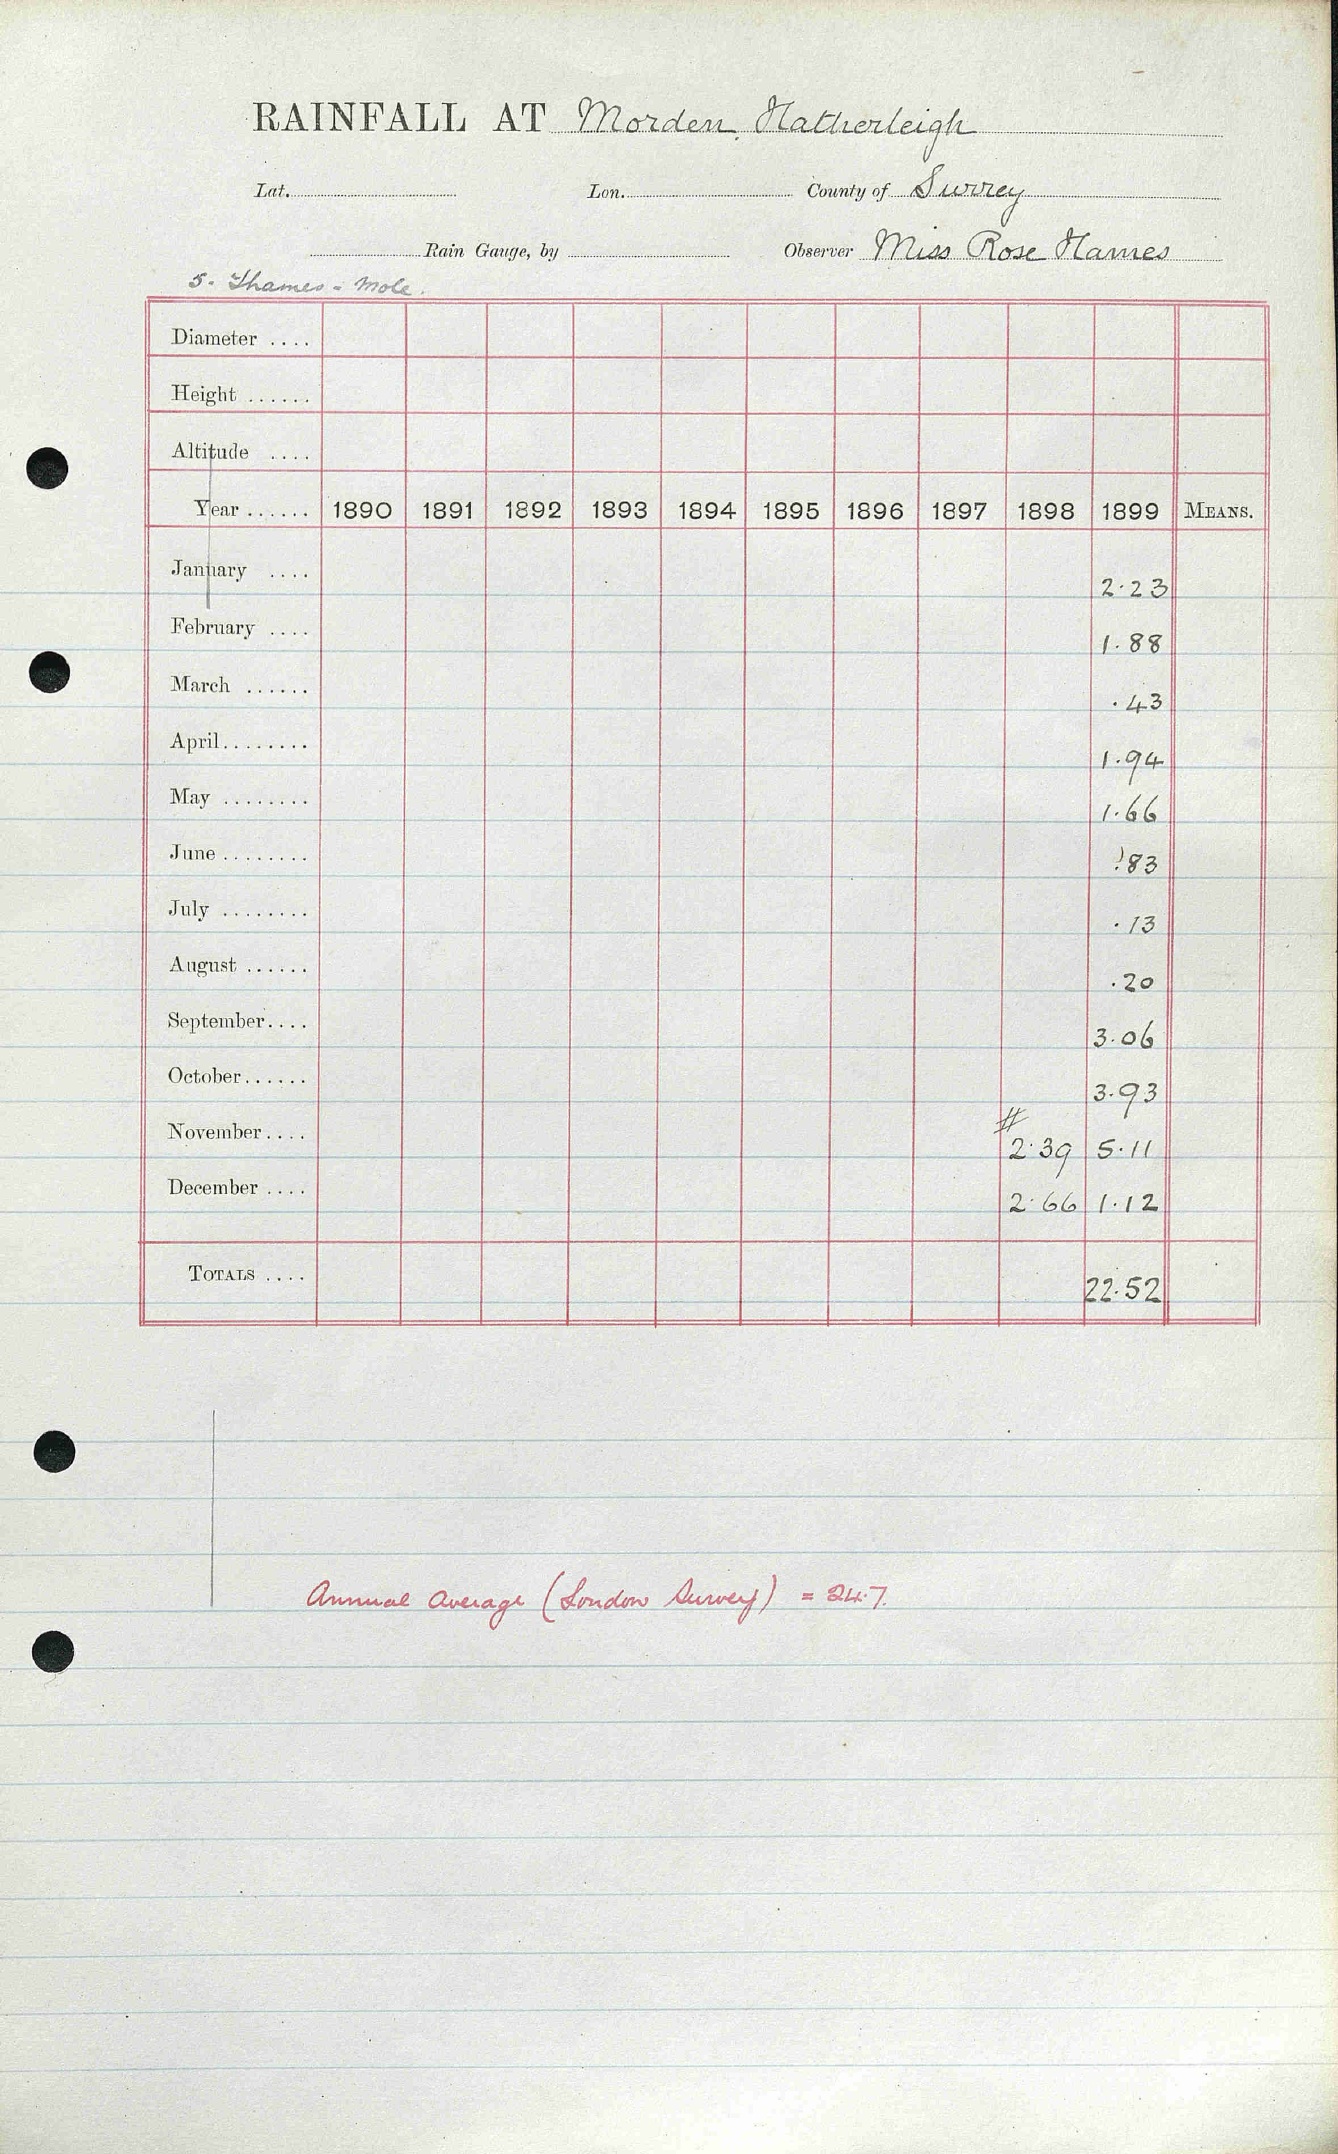 RAINFALL AT Morden, Hatherleigh
Lat. Lon. County of Surrey
Rain Gauge, by Observer Miss Rose Hames
5. Thames - Mole.
Diameter ....
Height ......
Altitude ....
Year ...... 1890 1891 1892 1893 1894 1895 1896 1897 1898 1899 MEANS.
January .... 2.23
February .... 1.88
March ...... .43
April........ 1.94
May ........ 1.66
June ........ .83
July ........ .13
August ...... .20
September.... 3.06
October...... 3.93
#
November.... 2.39 5.11
December .... 2.66 1.12
TOTALS .... 22.52
Annual Average (London Survey) = 24.7.